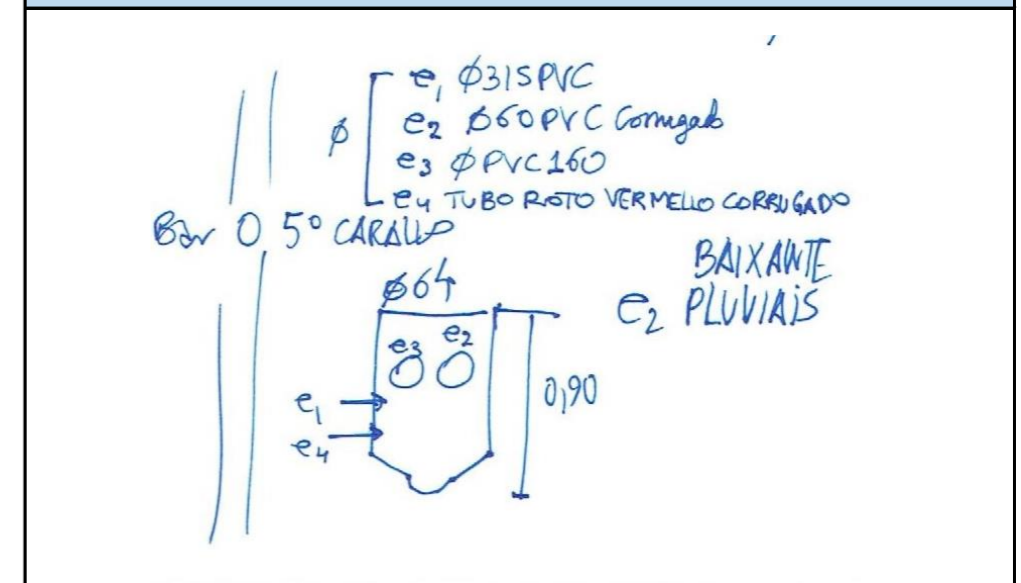 e1 Ø315PVC
Ø
e2 Ø60PVC Corrugado
e3 ØPVC160
e4 TUBO ROTO VERMELLO CORRUGADO
Bar O 5º CARALLO
BAIXANTE
e2 PLUVIAIS
Ø64
e3 e2
e1
e4
0,90